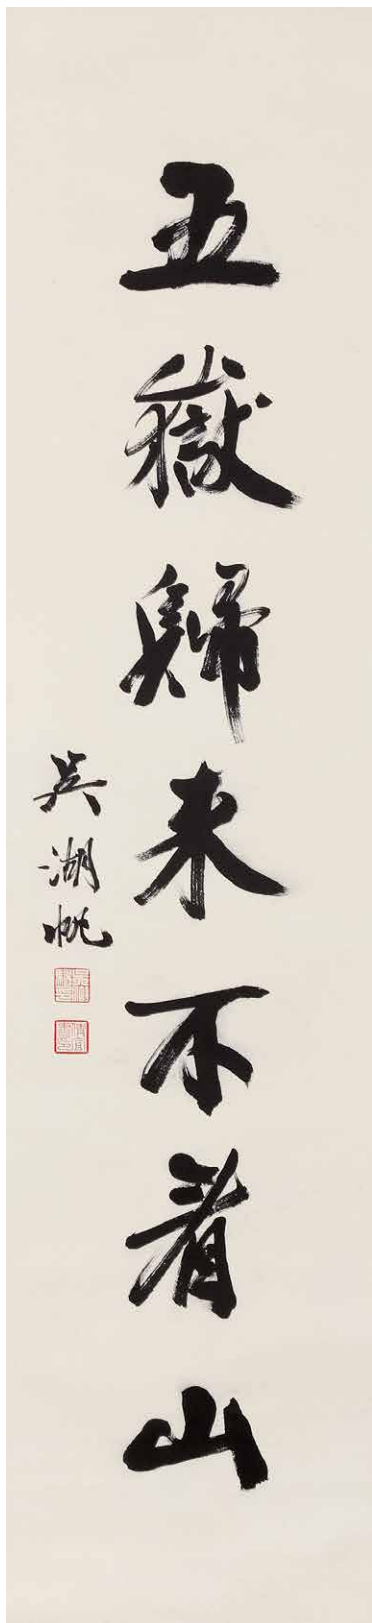 五嶽歸来不看山
吳湖帆